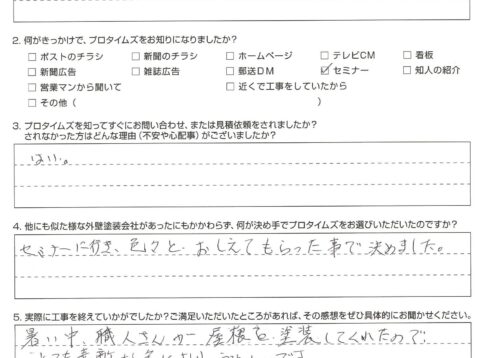 2. 何がきっかけで、プロタイムズをお知りになりましたか?
□ ポストのチラシ □ 新聞のチラシ □ ホームページ □ テレビCM □ 看板
□ 新聞広告 □ 雑誌広告 □ 郵送DM ☑ セミナー □ 知人の紹介
□ 営業マンから聞いて □ 近くで工事をしていたから
□ その他( )
3. プロタイムズを知ってすぐにお問い合わせ、または見積依頼をされましたか?
されなかった方はどんな理由(不安や心配事)がございましたか?
はい。
4. 他にも似た様な外壁塗装会社があったにもかかわらず、何が決め手でプロタイムズをお選びいただいたのですか?
セミナーに行き、色々と、おしえてもらった事で決めました。
5. 実際に工事を終えていかがでしたか?ご満足いただいたところがあれば、その感想をぜひ具体的にお聞かせください。
暑い中、職人さんが屋根を塗装してくれたので、